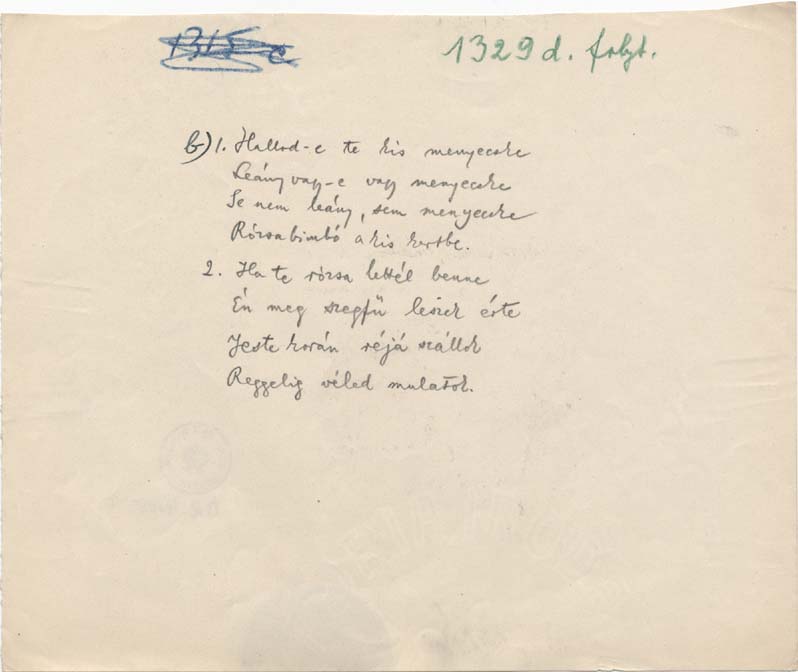 1329 d. folyt.
b) 1. Hallod-e te kis menyecske
Leány vagy-e vagy menyecske
Se nem leány, sem menyecske
Rózsabimbó a kis kertbe.
2. Ha te rózsa lettél benne
Én meg szegfü leszek érte
Jeste korán réjá szállok
Reggelig véled mulatok.